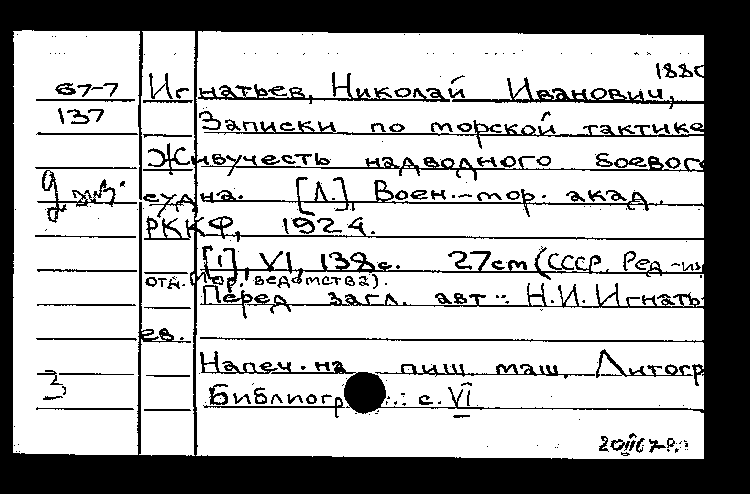 1880
67-7 Игнатьев, Николай Иванович,
137 Записки по морской тактике
Живучесть надводного боевого
судна. [Л.], Воен.-мор. акад.
РККФ, 1924.
[1], VI, 138с. 27cm (СССР. Ред-из
отд. Мор. ведомства).
Перед загл. авт.: Н.И. Игнать-
ев.
Напеч. на пиш. маш. Литогр
3 Библиогр.: с. VI